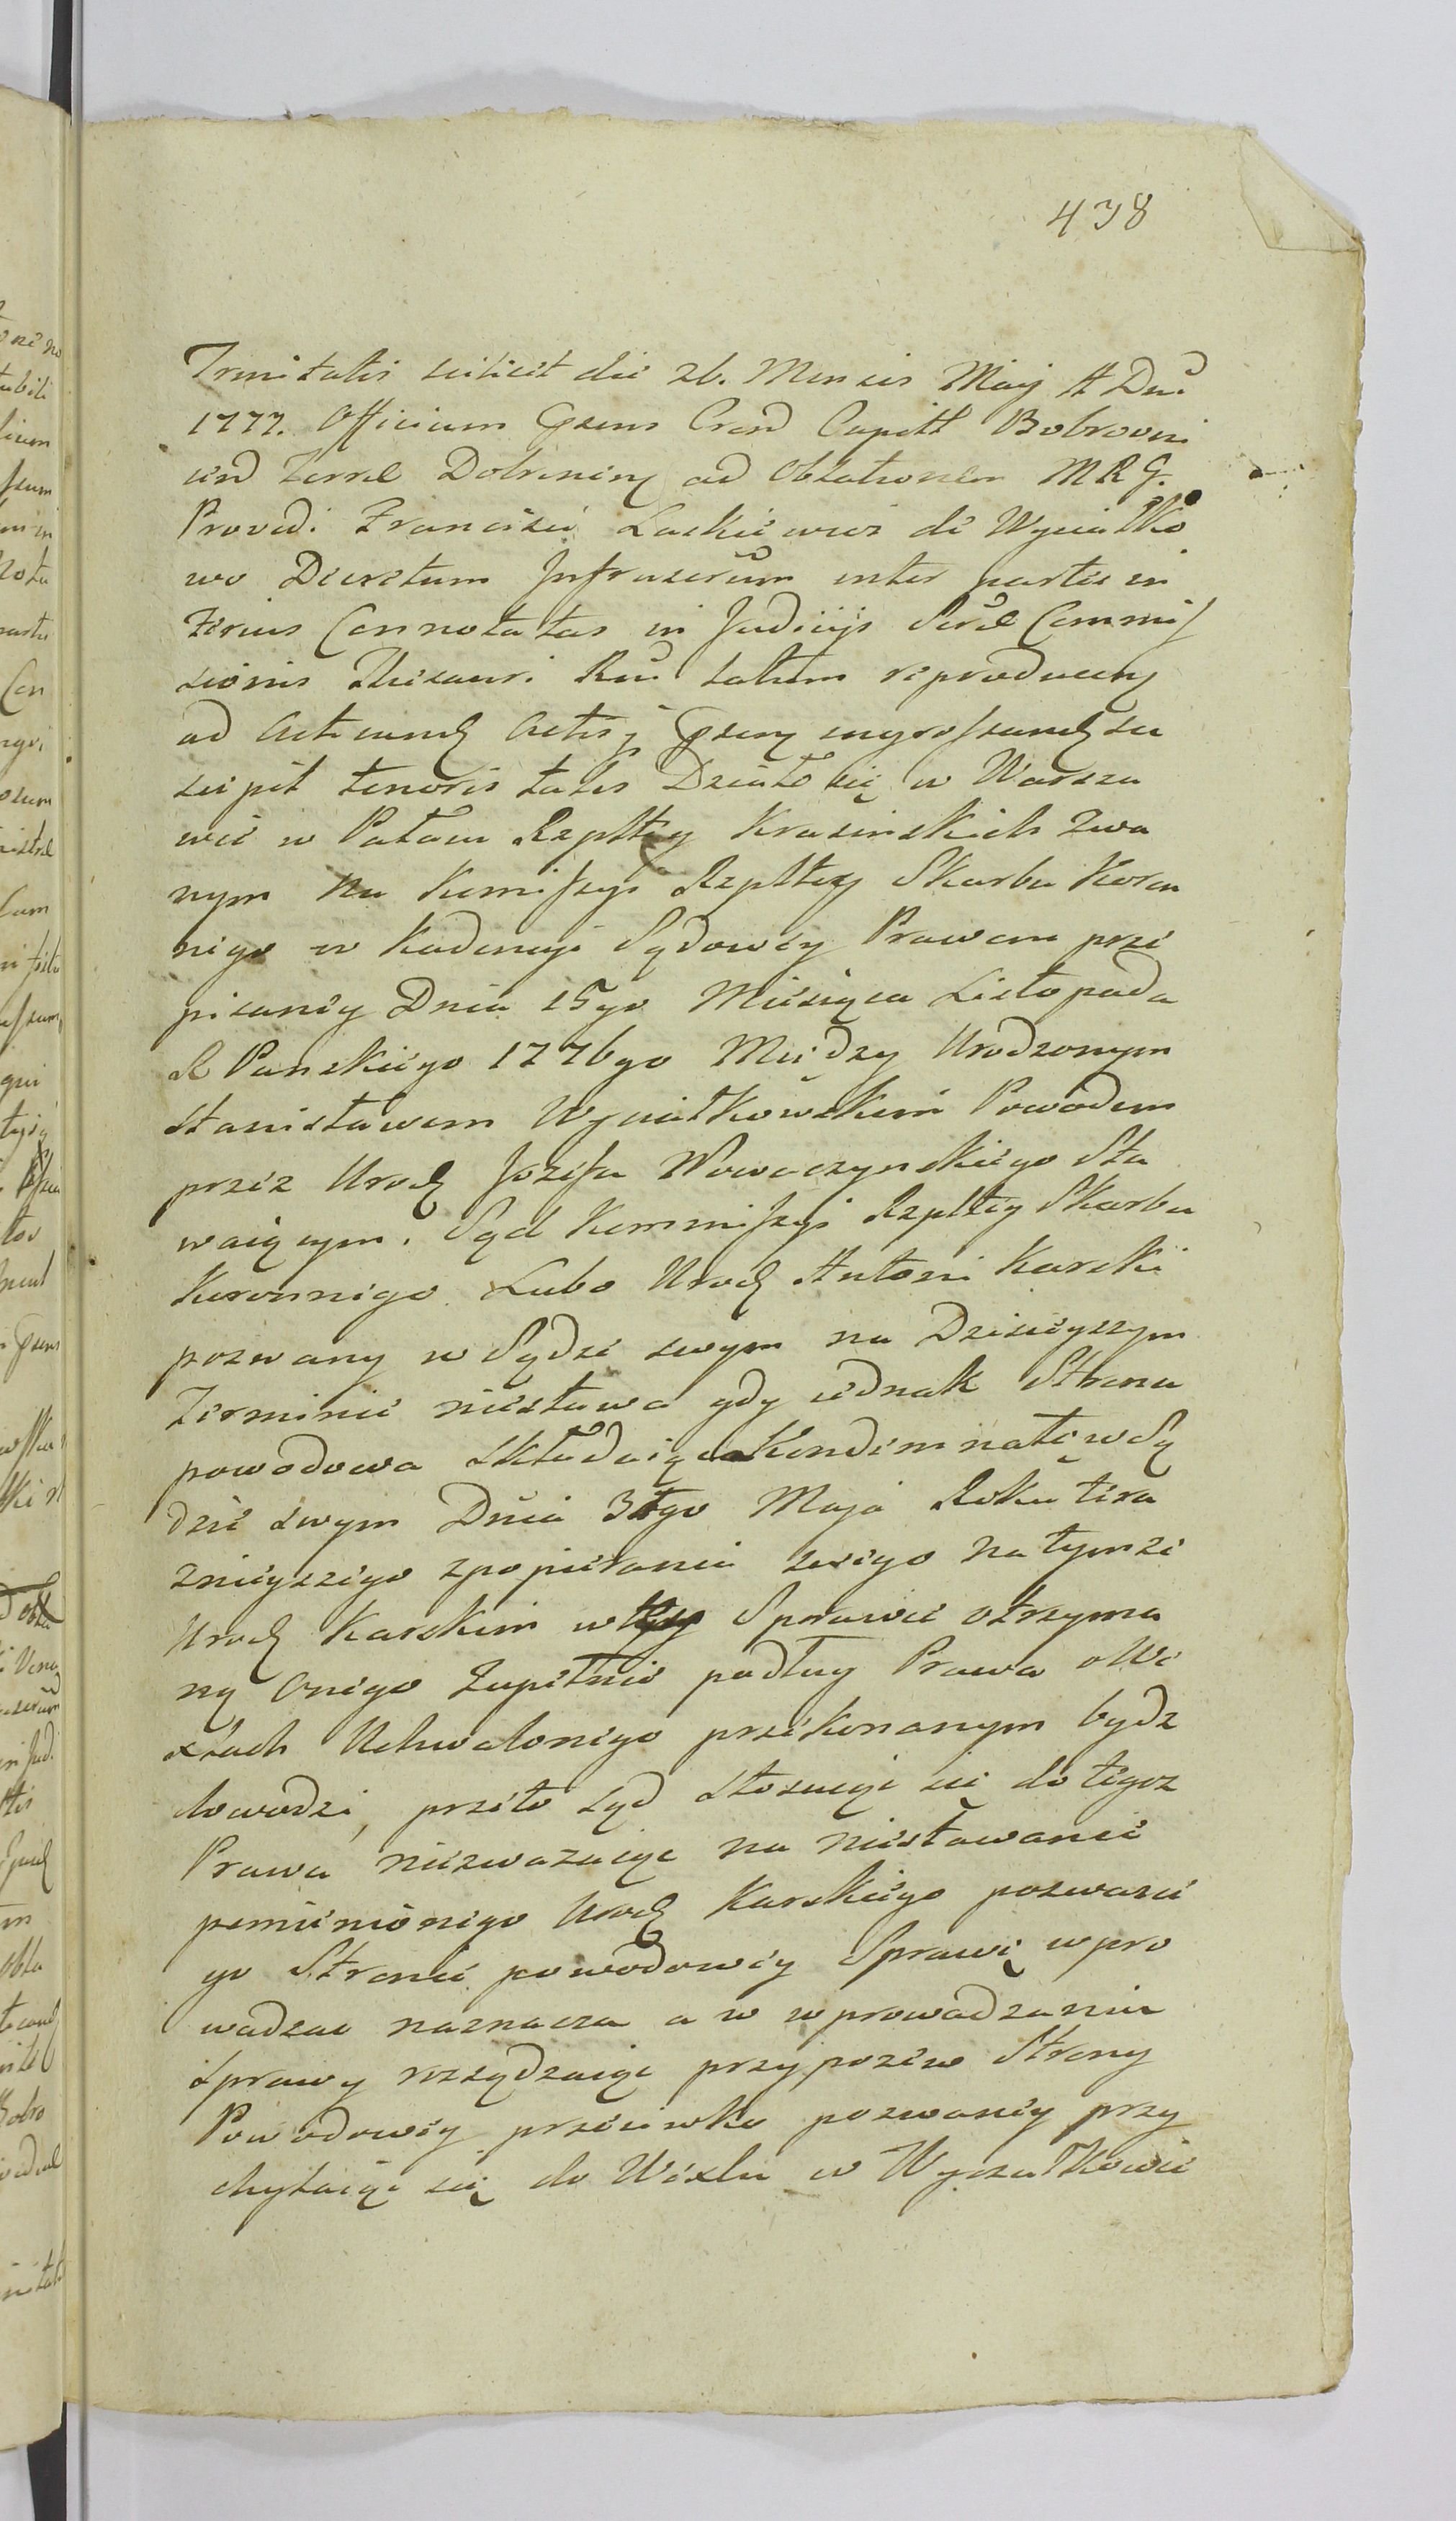 438
Trinitatis scilicet die 26. Mensis Maij A Dni
1777. Officium Psens Cren Capitt Bobrovni
cen Terrae Dobrinen ad Oblationem M R G.
Provdi Francisci Laskiewicz de Wyciałko
wo Decretum Infrascrum inter partes in
ferius Connotatas in Judicijs Seral Commis
sionis Thesauri Rni latum reproducen
ad Acticand Actisq Psen ingrossand su
scipit tenoris talis Działo się w Warsza
wie w Pałacu Rzpltey Krasinskich Zwa
nym na Kommissyi Rzpltey Skarbu Koron
nego w Kadencyi Sądowey Prawem prze
pisaney Dnia 15go Miesiąca Listopada
R Panskiego 1776go Między Urodzonym
Stanisławem Wyciałkowskim Powodem
przez Urod Jozefa Nowaczynskiego Sta
waiącym. Sąd Kommissyi Rzpltey Skarbu
Koronnego Lubo Urod Antoni Karski
pozwany w Sądzie swym na Dzisieyszym
Terminie niestawa gdy iednak Strona
powodowa Składaiąca Kondemnatę w Są
dzie swym Dnia 31go Maja Roku tera
znieyszego z popierania swego na tymze
Urod Karskim w tey Sprawie otrzyma
ną Onego Zupełnie podług Prawa o We
xlach Uchwalonego przekonanym bydz
dowodzi, przeto Sąd Stosuiąc się do tegoz
Prawa niezwazaiąc na niestawanie
pomienionego Urod Karskiego pozwane
go Stronie powodowey Sprawę wpro
wadzac naznacza a w wprowadzaniu
Sprawy rozsądzaiąc przypozew Strony
Powodowey przeciwko pozwaney przy
chylaiąc się do Wexlu w Wyczałkowie